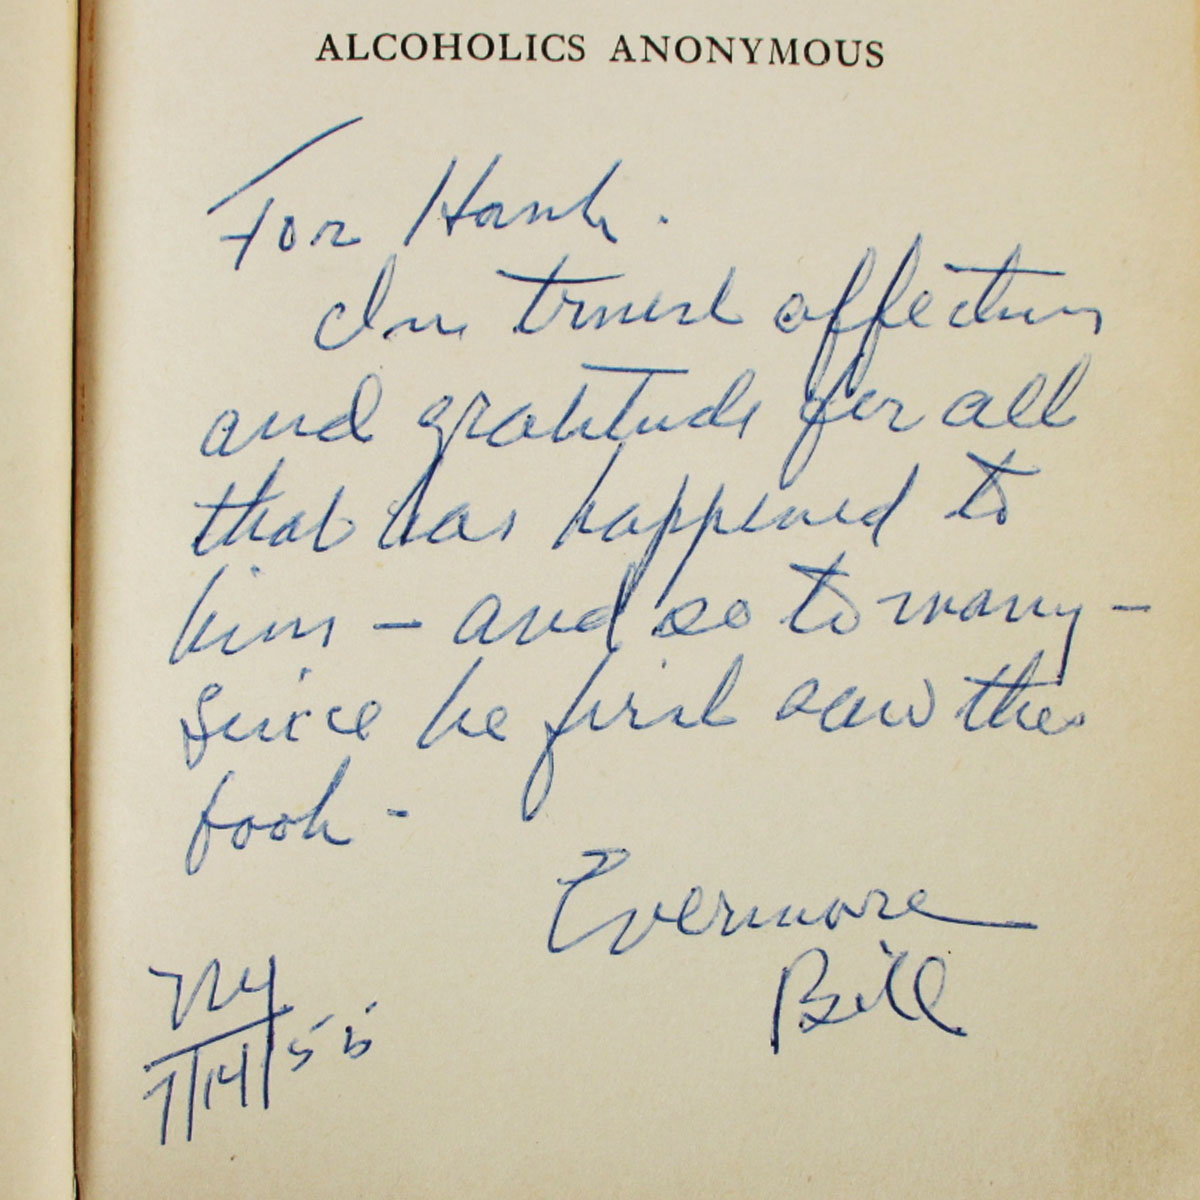 ALCOHOLICS ANONYMOUS
For Hank.
In truest affection
and gratitude for all
that has happened to
him — and so to many —
since he first saw the
book -
Evermore
Bill
NY
7/14/55